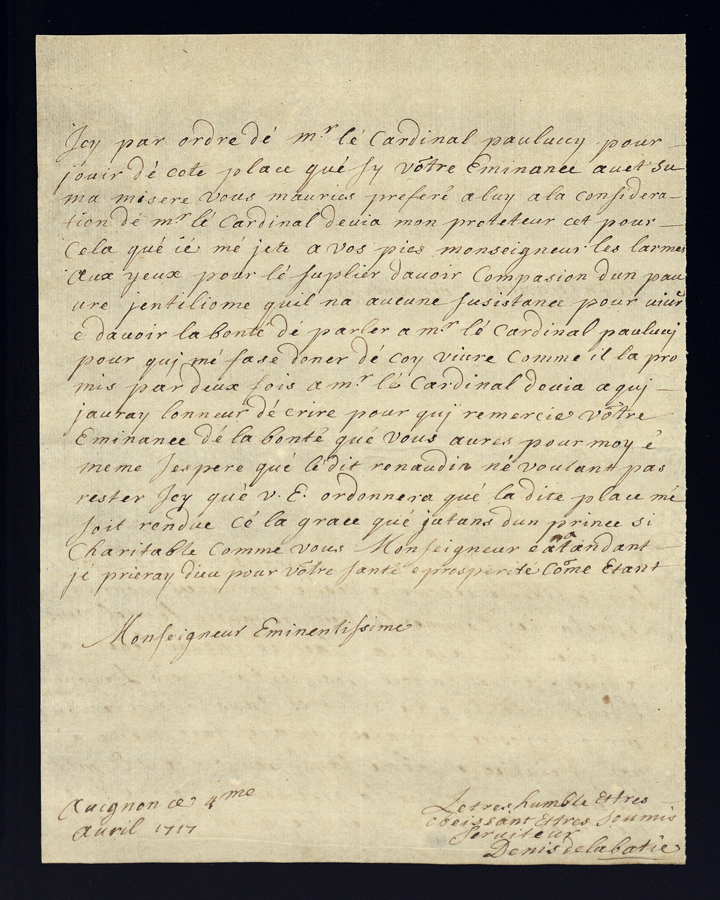 Jcy par ordre dé mr lé Cardinal pauluccy pour
jouir dé cete place qué sy vôtre Eminance avet su
ma misere vous mauries preferé a luy a la considera-
tion dé mr lé Cardinal devia mon proteteur cet pour
Cela qué ié mé jete a vos pies monseigneur les larmes
aux yeux pour lé suplier davoir Compasion dun pau
vre jentiliome quil na aucune susistance pour vivre
e davoir la bonté dé parler a mr lé Cardinal pauluccj
pour quj mé fase doner dé coy vivre Comme il la pro
mis par deux fois a mr lé Cardinal devia a quj
jauray lonneur dé crire pour quj remercie vôtre
Eminance dé la bonté qué vous aures pour moy é
meme Jespere qué lé dit renaudin né voulant pas
rester Jcy qué v. E. ordonnera qué la dite place mé
soit rendue Cé la grace qué jatans dun prince si
Charitable Comme vous Monseigneur e an atandant
jé prieray dieu pour vôtre santé e prosperité Come Etant
Monseigneur Eminentissime
Avignon ce 4me
Avril 1717
Le tres humble Et tres
obeissant Et tres Soumis
Serviteur
Denis de la batie